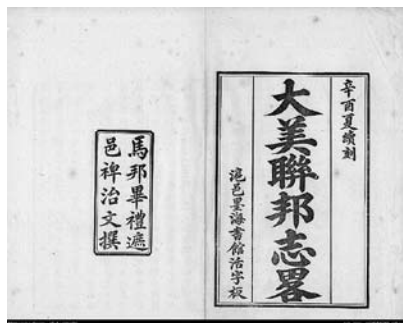 辛酉夏續刻
大美聯邦志畧
滬邑墨海書館活字板
馬邦畢禮遮
邑裨治文撰